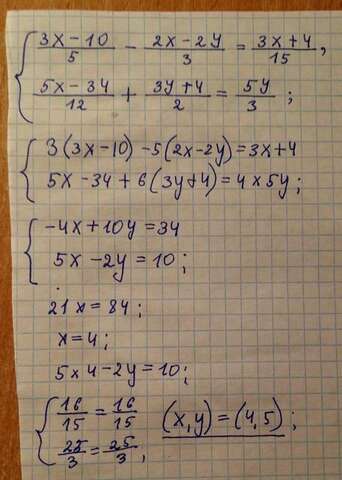 { (3x-10)/5 - (2x-2y)/3 = (3x+4)/15,
(5x-34)/12 + (3y+4)/2 = 5y/3 ;
{ 3(3x-10) -5(2x-2y)=3x+4
5x-34+6(3y+4)=4×5y;
{ -4x+10y=34
5x-2y=10;
21x=84;
x=4;
5×4-2y=10;
{ 16/15 = 16/15 (x,y)=(4,5) ;
25/3 = 25/3,